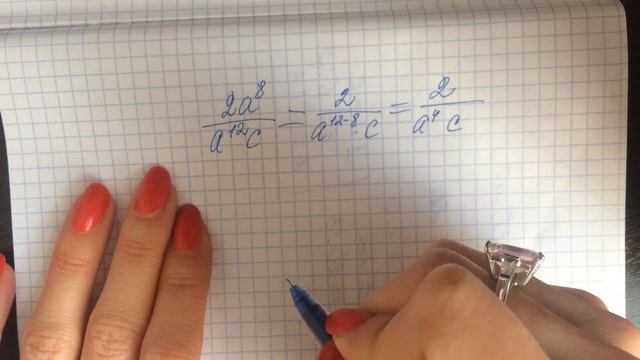 2a⁸/a¹²c = 2/a¹²⁻⁸·c = 2/a⁴c